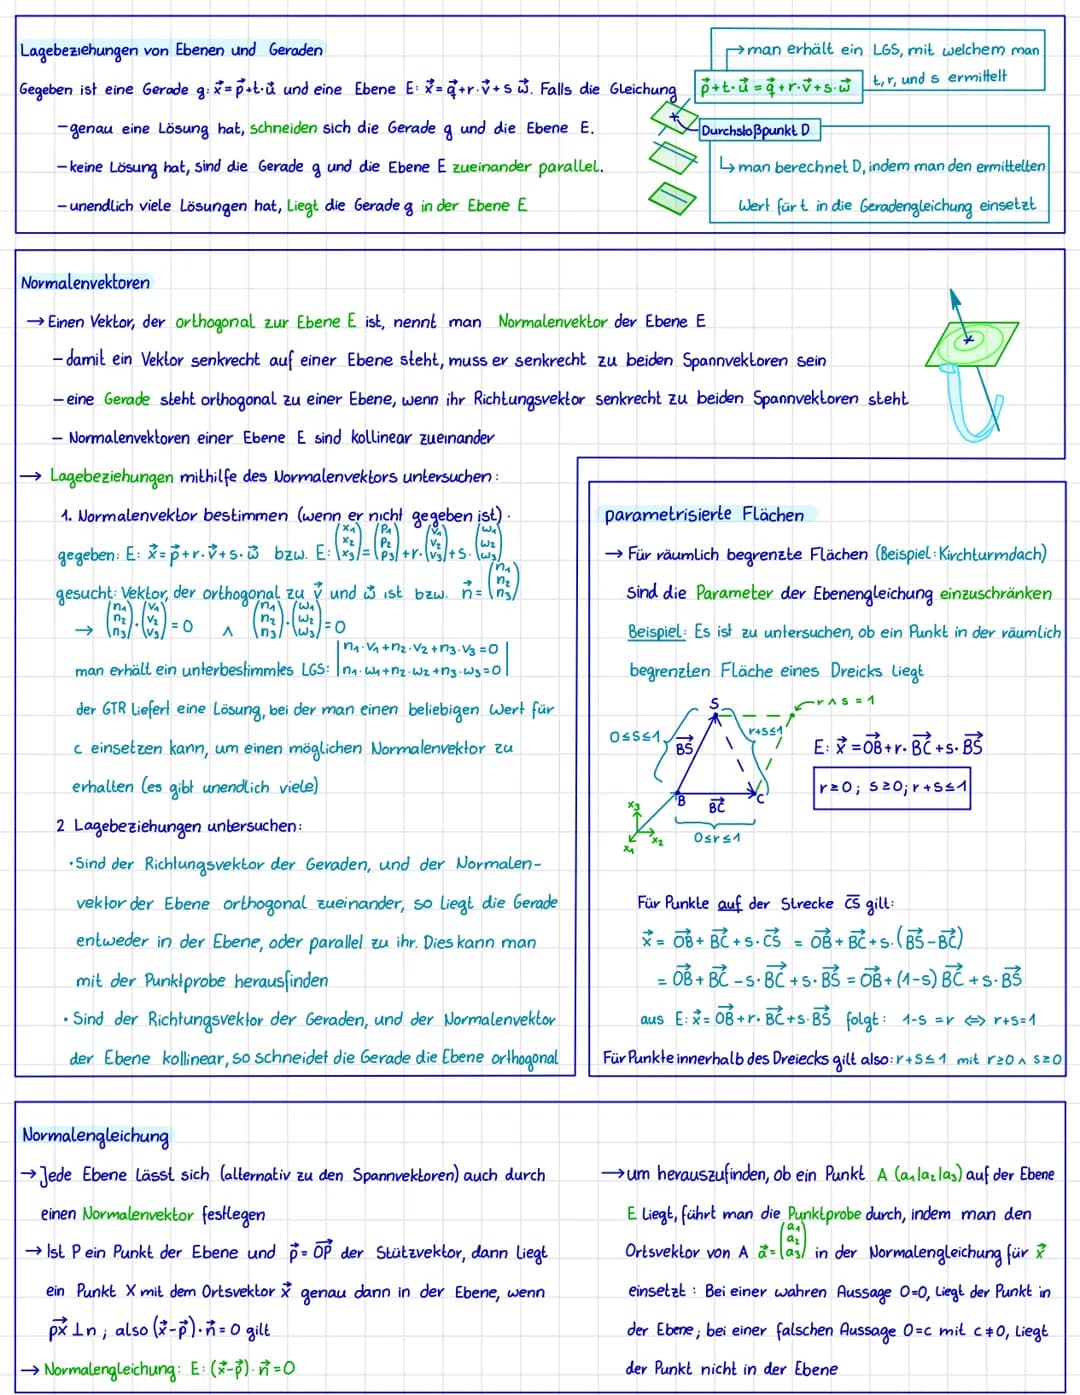 Lagebeziehungen von Ebenen und Geraden
Gegeben ist eine Gerade g: x⃗ = p⃗+t·u⃗ und eine Ebene E: x⃗ = q⃗+r·v⃗+s w⃗. Falls die Gleichung p⃗+t·u⃗ = q⃗+r·v⃗+s·w⃗
→man erhält ein LGS, mit welchem man
t, r, und s ermittelt
-genau eine Lösung hat, schneiden sich die Gerade g und die Ebene E.
Durchstoßpunkt D
-keine Lösung hat, sind die Gerade g und die Ebene E zueinander parallel.
↳man berechnet D, indem man den ermittelten
Wert für t in die Geradengleichung einsetzt
-unendlich viele Lösungen hat, Liegt die Gerade g in der Ebene E
Normalenvektoren
→Einen Vektor, der orthogonal zur Ebene E ist, nennt man Normalenvektor der Ebene E
-damit ein Vektor senkrecht auf einer Ebene steht, muss er senkrecht zu beiden Spannvektoren sein
-eine Gerade steht orthogonal zu einer Ebene, wenn ihr Richtungsvektor senkrecht zu beiden Spannvektoren steht
- Normalenvektoren einer Ebene E sind kollinear zueinander
→ Lagebeziehungen mithilfe des Normalenvektors untersuchen:
1. Normalenvektor bestimmen (wenn er nicht gegeben ist).
gegeben: E: x⃗ = p⃗+r·v⃗+s·w⃗ bzw. E: (x₁ x₂ x₃) = (p₁ p₂ p₃) +r· (v₁ v₂ v₃) +s· (w₁ w₂ w₃)
gesucht: Vektor, der orthogonal zu v⃗ und w⃗ ist bzw. n⃗ = (n₁ n₂ n₃)
→ (n₁ n₂ n₃)·(v₁ v₂ v₃) = 0 ∧ (n₁ n₂ n₃)·(w₁ w₂ w₃) = 0
man erhält ein unterbestimmtes LGS: |n₁·v₁+n₂·v₂+n₃·v₃=0|
|n₁·w₁+n₂·w₂+n₃·w₃=0|
der GTR Liefert eine Lösung, bei der man einen beliebigen Wert für
c einsetzen kann, um einen möglichen Normalenvektor zu
erhalten (es gibt unendlich viele)
2 Lagebeziehungen untersuchen:
·Sind der Richtungsvektor der Geraden, und der Normalen-
vektor der Ebene orthogonal zueinander, so Liegt die Gerade
entweder in der Ebene, oder parallel zu ihr. Dies kann man
mit der Punktprobe herausfinden
· Sind der Richtungsvektor der Geraden, und der Normalenvektor
der Ebene kollinear, so schneidet die Gerade die Ebene orthogonal
parametrisierte Flächen
→ Für räumlich begrenzte Flächen (Beispiel: Kirchturmdach)
sind die Parameter der Ebenengleichung einzuschränken
Beispiel: Es ist zu untersuchen, ob ein Punkt in der räumlich
begrenzten Fläche eines Dreicks Liegt
S
r∧s = 1
0≤S≤1
BS⃗
r+s≤1
E: x⃗ = OB⃗+r· BC⃗+s· BS⃗
r≥0; s≥0; r+s≤1
B
BC⃗
C
x₃
x₂
x₁
0≤r≤1
Für Punkte auf der Strecke C̅S̅ gilt:
x⃗ = OB⃗+ BC⃗+s·CS⃗ = OB⃗+BC⃗+s·(BS⃗-BC⃗)
= OB⃗+BC⃗-s·BC⃗+s·BS⃗ = OB⃗+(1-s)BC⃗+s·BS⃗
aus E: x⃗ = OB⃗+r· BC⃗+s·BS⃗ folgt: 1-s =r ⇔ r+s=1
Für Punkte innerhalb des Dreiecks gilt also: r+s≤1 mit r≥0 ∧ s≥0
Normalengleichung
→Jede Ebene Lässt sich (alternativ zu den Spannvektoren) auch durch
einen Normalenvektor festlegen
→ Ist P ein Punkt der Ebene und p⃗ = OP⃗ der Stützvektor, dann Liegt
ein Punkt X mit dem Ortsvektor x⃗ genau dann in der Ebene, wenn
px⃗ ⊥n ; also (x⃗-p⃗)·n⃗ = 0 gilt
→ Normalengleichung: E: (x⃗-p⃗)·n⃗ = 0
→um herauszufinden, ob ein Punkt A (a₁|a₂|a₃) auf der Ebene
E Liegt, führt man die Punktprobe durch, indem man den
Ortsvektor von A a⃗ = (a₁ a₂ a₃) in der Normalengleichung für x⃗
einsetzt : Bei einer wahren Aussage 0=0, Liegt der Punkt in
der Ebene; bei einer falschen Aussage 0=c mit c≠0, Liegt
der Punkt nicht in der Ebene